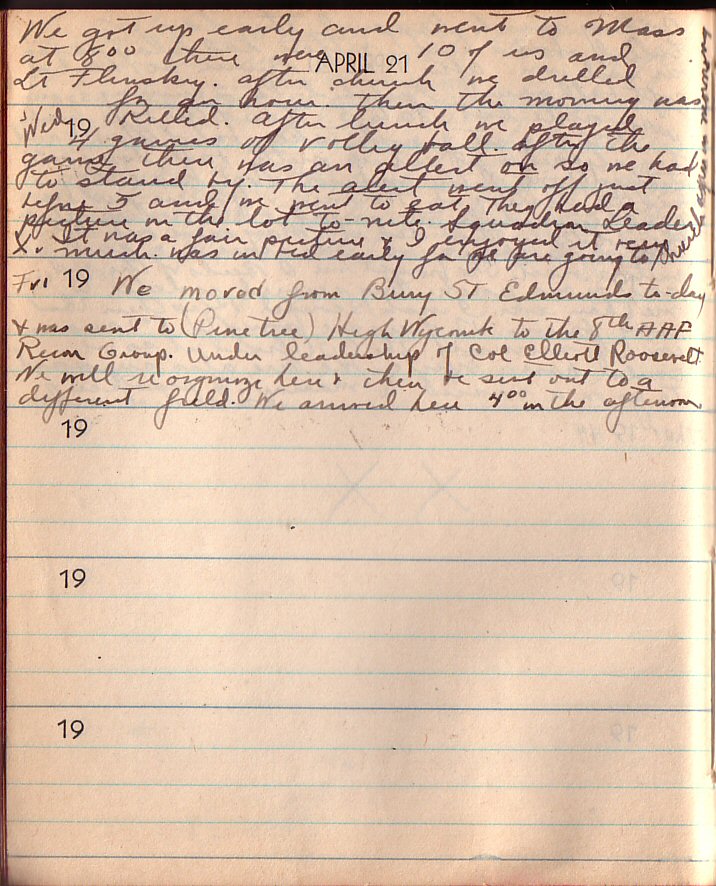 We got up early and went to Mass
at 800 there were 10 of us and
APRIL 21
Lt Flensky. after church we drilled
for an hour. then the morning was
Wed 19 Killed. after lunch we played
4 games of volley ball. after the
games there was an allert on so we had
to stand by. The alert went off just
before 5 and we went to eat They had a
picture in the lot to-nite. Squadron Leader
X. It was a fair picture & I enjoyed it very
much. was in bed early for we are going to
church again in
Fri 19 We moved from Bury ST Edmunds to-day
& was sent to (Pinetree) High Wycomb to the 8th AAF
Recon Group. Under leadership of Col Elliott Roosevelt
We will reorganize here & then be sent out to a
different field. We arrived here 400 in the afternoon
19
19
19